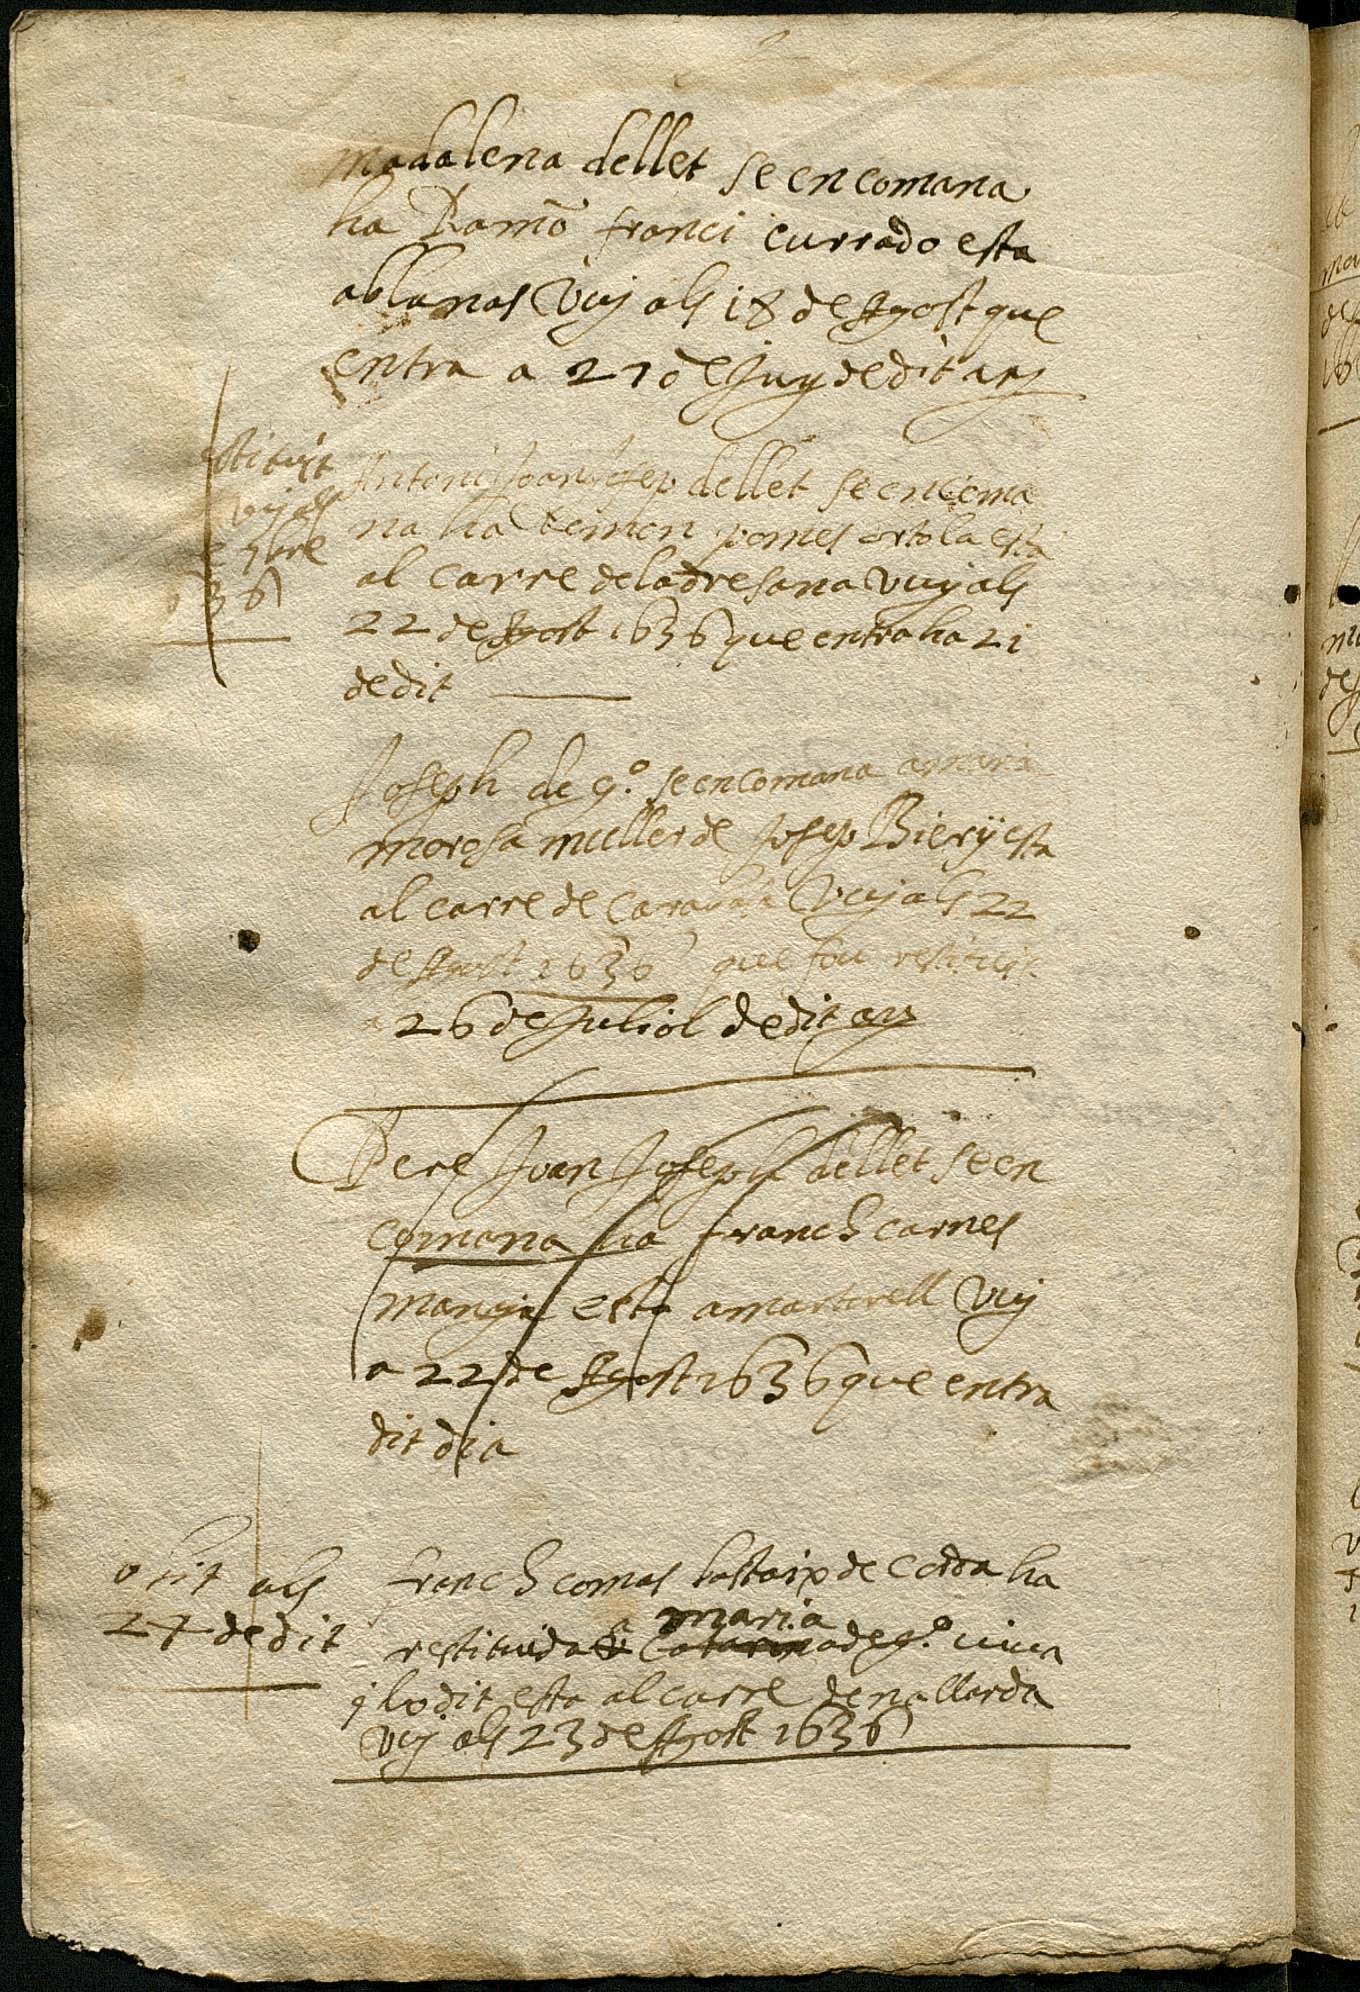 Madalena dellet se encomana
ha Ramō franci currado esta
ablanas Vuy als 18 de Agost que
entra a 27 de Juny de dit any
stituit
Vuy als
e 7bre
636
Antoni Joan Josep dellet se encoma
na ha Remon pomes ortola esta
al carre de la dresana Vuy als
22 de Agost 1636 que entra ha 21
de dit
Joseph de g.º se encomana a maria
morosa muller de Josep Biery esta
al carre de Vuy als 22
de Agost 1636 que fou restituit
a 26 de Juliol de dit any
Pere Juan Joseph dellet se en
comana ha franch carnes
manya esta a martorell Vuy
a 22 de Agost 1636 que entra
dit dia
obiit als
27 de dit
franch comas bastaix de Corda ha
restituida a maria Catarina de g.º viuva
y lo dit esta al carre den allarda
Vuy als 23 de Agost 1636